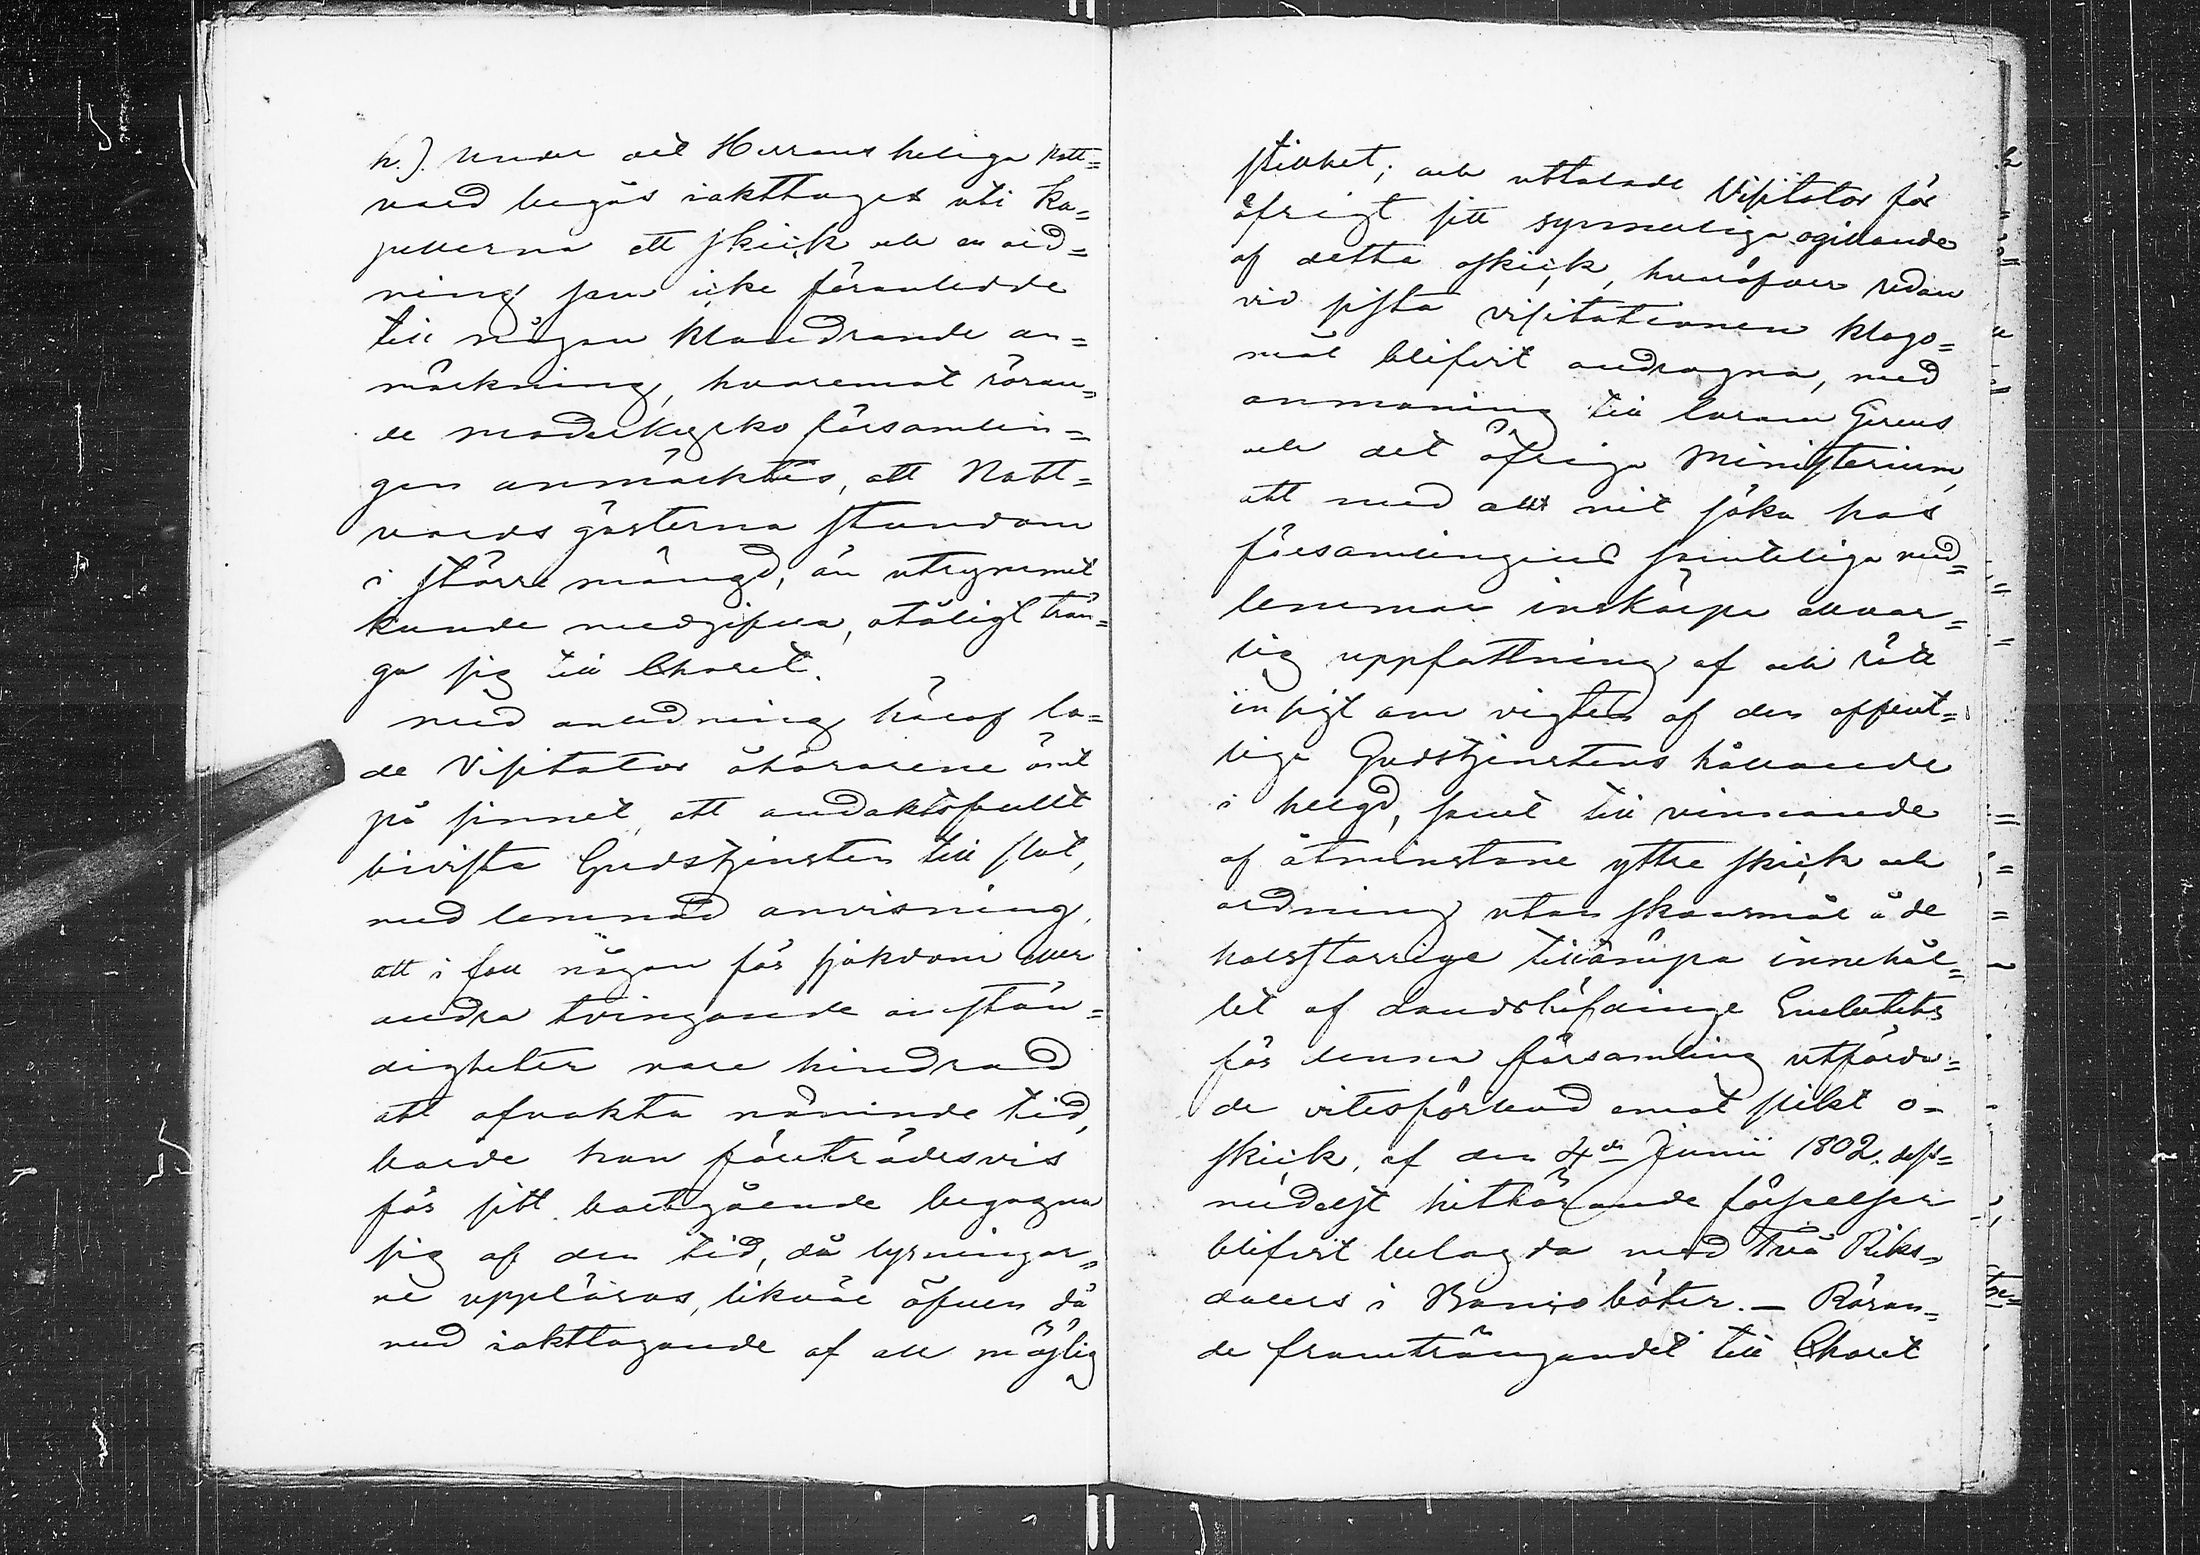 h.). Under det Herrans heliga Natt=
vard begås iakttages uti Ka=
pellerna ett skick och en ord=
ning som icke föranledde
till någon klandrande an=
märkning, hvaremot röran=
de moderkyrko församlin=
gen anmärktes, att Natt=
vards gästerna stundom
i större mängd, än utrymmet
kunde medgifva, otåligt trän=
ga sig till Choret.
med anledning häraf la=
de Visitator åhörarene ömt
på sinnet, att andaktsfullt
bivista Gudstjensten till slut,
med lemnad anvisning,
att i fall någon för sjukdom eller
andra tvingande omstän=
digheter vore hindrad
att afvakta nämnde tid,
borde han företrädesvis
för sitt bortgående begagna
sig af den tid, då lysningar=
ne uppläsas, likväl äfven då
med iakttagande af all möjlig
stillhet; och uttalade Visitator för
öfrigt sitt synnerliga ogillande
af detta oskick, hvaröfver redan
vid sista visitationen klago=
mål blifvit andragna, med
anmaning till loram Gerens
och det öfriga Ministerium,
att med allt nit söka hos
församlingens samteliga med=
lemmar inskärpa allvar=
lig uppfattning af och rätt
insigt om vigten af den offent=
liga Gudstjenstens hållande
i helgd, samt till vinnande
af åtminstone yttre skick och
ordning utan skonsmål å de
halsstarrige tillämpa innehål=
let af Landshöfdinge Embetets
för denna församling utfärda=
de vitesförbud emot slikt o=
skick, af den 4de Junii 1802. dess=
medelst hithörande förseelser
blifvit belagda med Två Riks=
dalers i Banco böter. — Röran=
de framträngandet till Choret